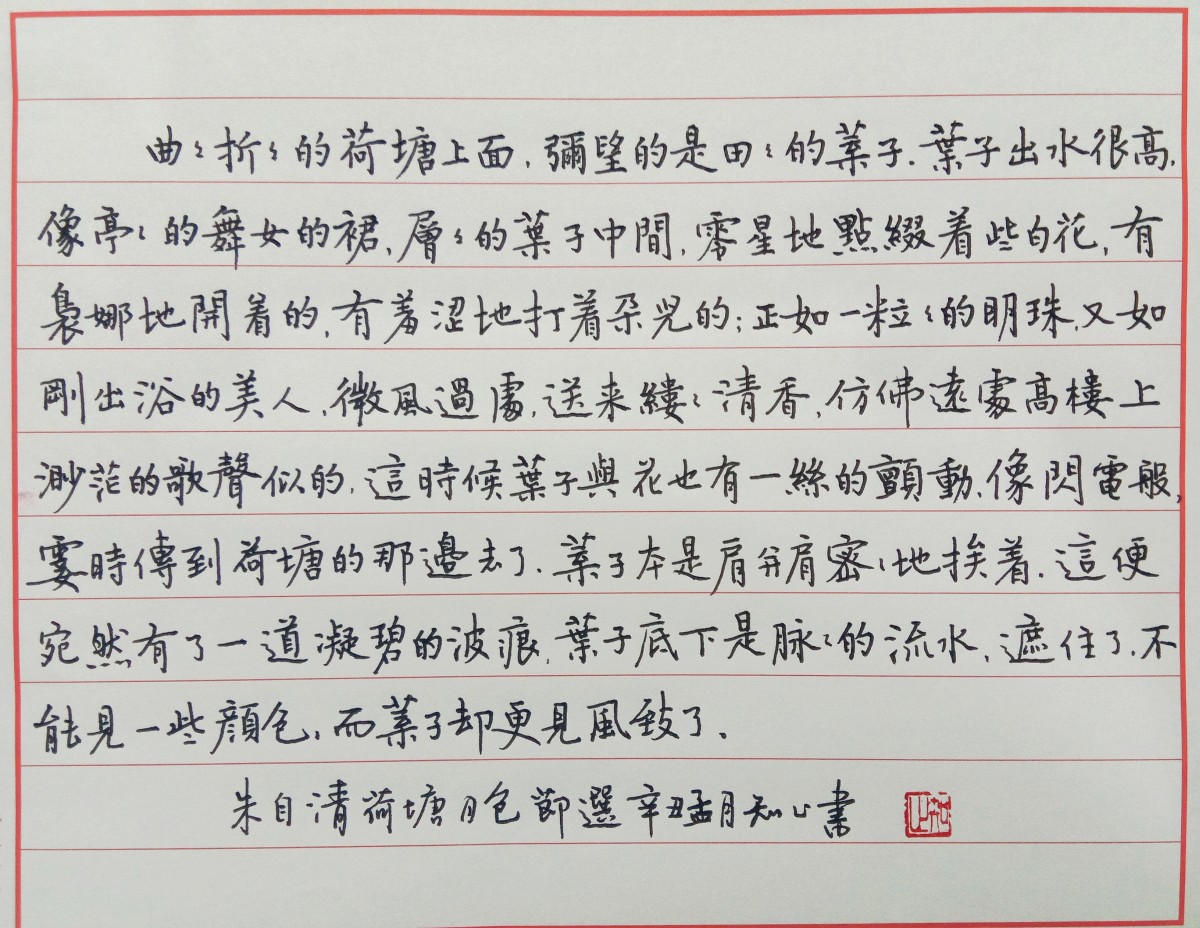 曲々折々的荷塘上面，彌望的是田々的葉子．葉子出水很高，
像亭々的舞女的裙，層々的葉子中間，零星地點綴着些白花，有
裊娜地開着的，有羞涩地打着朵兒的；正如一粒々的明珠，又如
剛出浴的美人，微風過處，送来縷々清香，仿佛遠處高樓上
渺茫的歌聲似的，這時候葉子與花也有一絲的顫動，像閃電般，
霎時傳到荷塘的那邊去了．葉子本是肩并肩密々地挨着，這便
宛然有了一道凝碧的波痕，葉子底下是脉々的流水，遮住了，不
能見一些顔色，而葉子却更見風致了．
朱自清荷塘月色節選辛丑孟月知心書